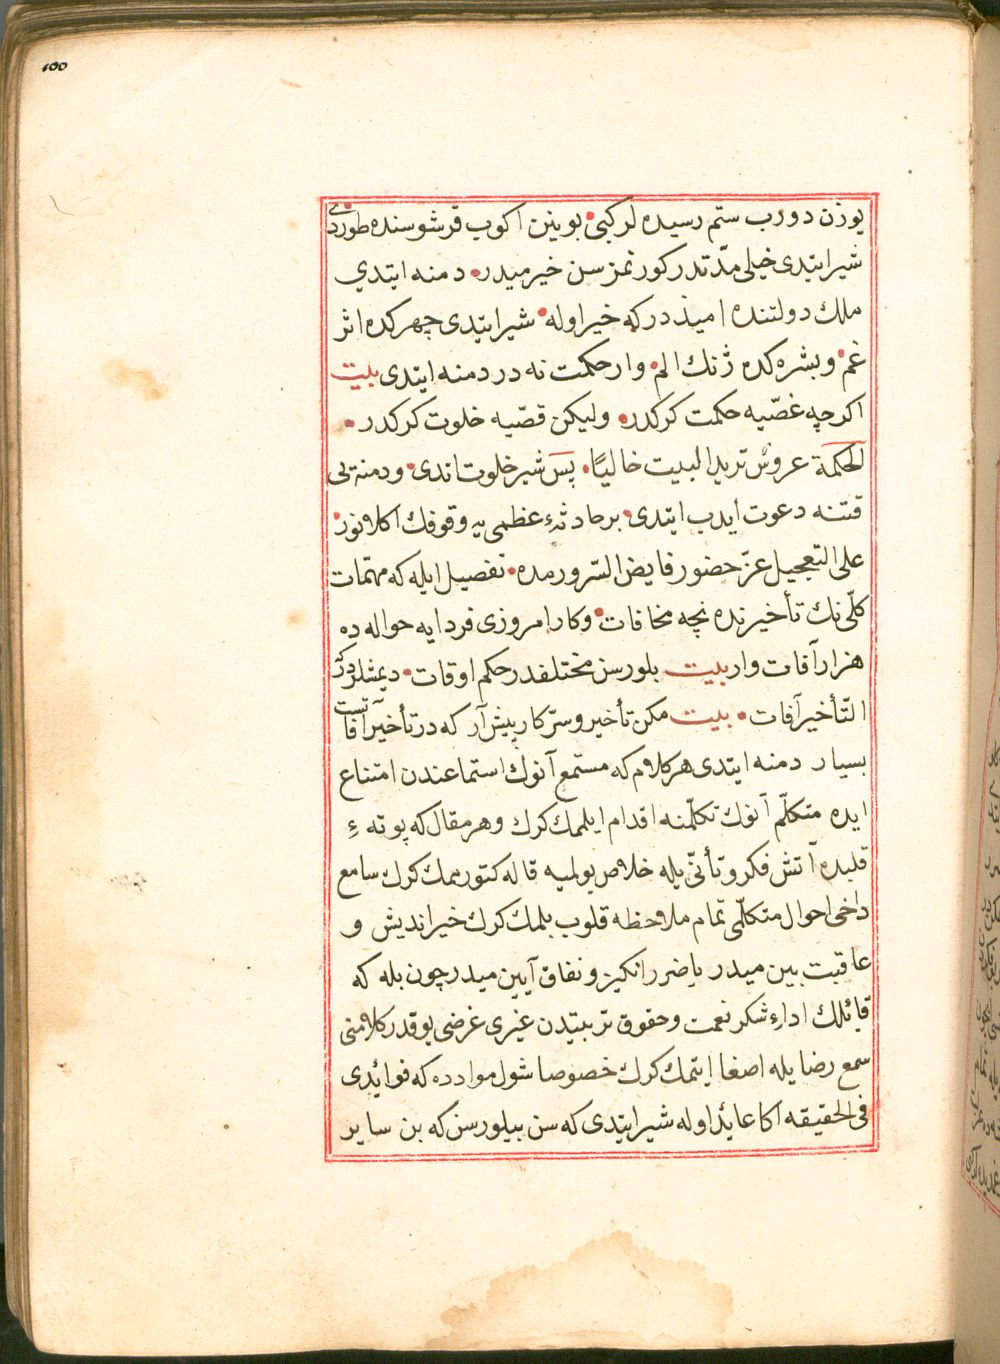 ١٥٥
يوزن دورب ستم رسيده لركبى بوينين اكوب قرشوسنده طوردى
شير ايتدى خيلى مدّتدر كورنمز سن خير ميدر دمنه ايتدي
ملك دولتنده اميددر كه خير اوله شير ايتدى چهركده اثر
غم وبشره كده ژنك الم وار حكمت نه در دمنه ايتدى بيت
اكرچه غصّيه حكمت كركدر وليكن قصّيه خلوت كركدر
الحكمة عروسٌ تريد البيت خاليًا پس شير خلوت اتدى ودمنه يى
قتنه دعوت ايدب ايتدى بر حادثهٔ عظمى يه وقوفك اكلانور
على التعجيل عزّ حضور فايض السّرورمده تفصيل ايله كه مهمّات
كلّى نك تأخيرنده نچه مخافات وكار امروزى فردايه حواله ده
هزار آفات وار بيت بلورسن مختلفدر حكم اوقات ديمشلردر
التّأخير آفات بيت مكن تأخير وسرّ كار پيش آر كه در تأخير آفاتست
بسيار دمنه ايتدى هر كلام كه مستمع آنوك استماعندن امتناع
ايده متكلّم آنوك تكلّمنه اقدام ايلمك كرك وهر مقال كه پوتهٔ
قلبده آتش فكر وتأنّى يله خلاص بولميه قاله كتورممك كرك سامع
داخى احوال متكلّمى تمام ملاحظه قلوب بلمك كرك خير انديش و
عاقبت بين ميدر يا ضرر انكيز ونفاق آيين ميدر چون بله كه
قائلك اداء شكر نعمت وحقوق تربيتدن غيرى غرضى يوقدر كلامنى
سمع رضا يله اصغا ايتمك كرك خصوصا شول مواد ده كه فوائدى
فى الحقيقه اكا عائد اوله شير ايتدى كه سن بيلورسن كه بن ساير